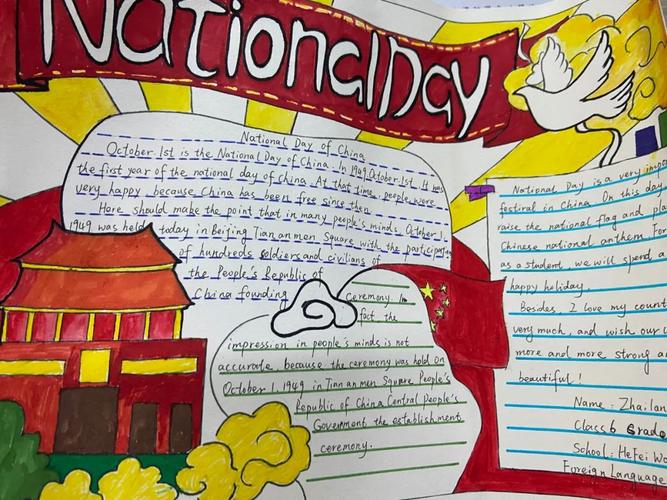 NationalDay
National Day of China
October 1st is the National Day of China. In 1949.October.1st. It was
the first year of the national day of China. At that time, people were
very happy because China has been free since then.
Here should make the point that in many people's minds, October 1,
1949 was held today in Beijing Tian an men Square with the participat
of hundreds soldiers and civilians of
the People's Republic of
China founding
Ceremony. In
fact, the
impression in people's minds is not
accurate, because the ceremony was held on
October 1, 1949 in Tian an men Square People's
Republic of China Central people's
Government the establishment
ceremony.
National Day is a very
festival in China. On this day
raise the national flag and
Chinese national anthem.
as a student, we will spend a
happy holiday.
Besides, I love my
very much, and wish our
more and more strong
beautiful!
Name: Zhai
Class 6 Grade
School: HeFei
Foreign Language